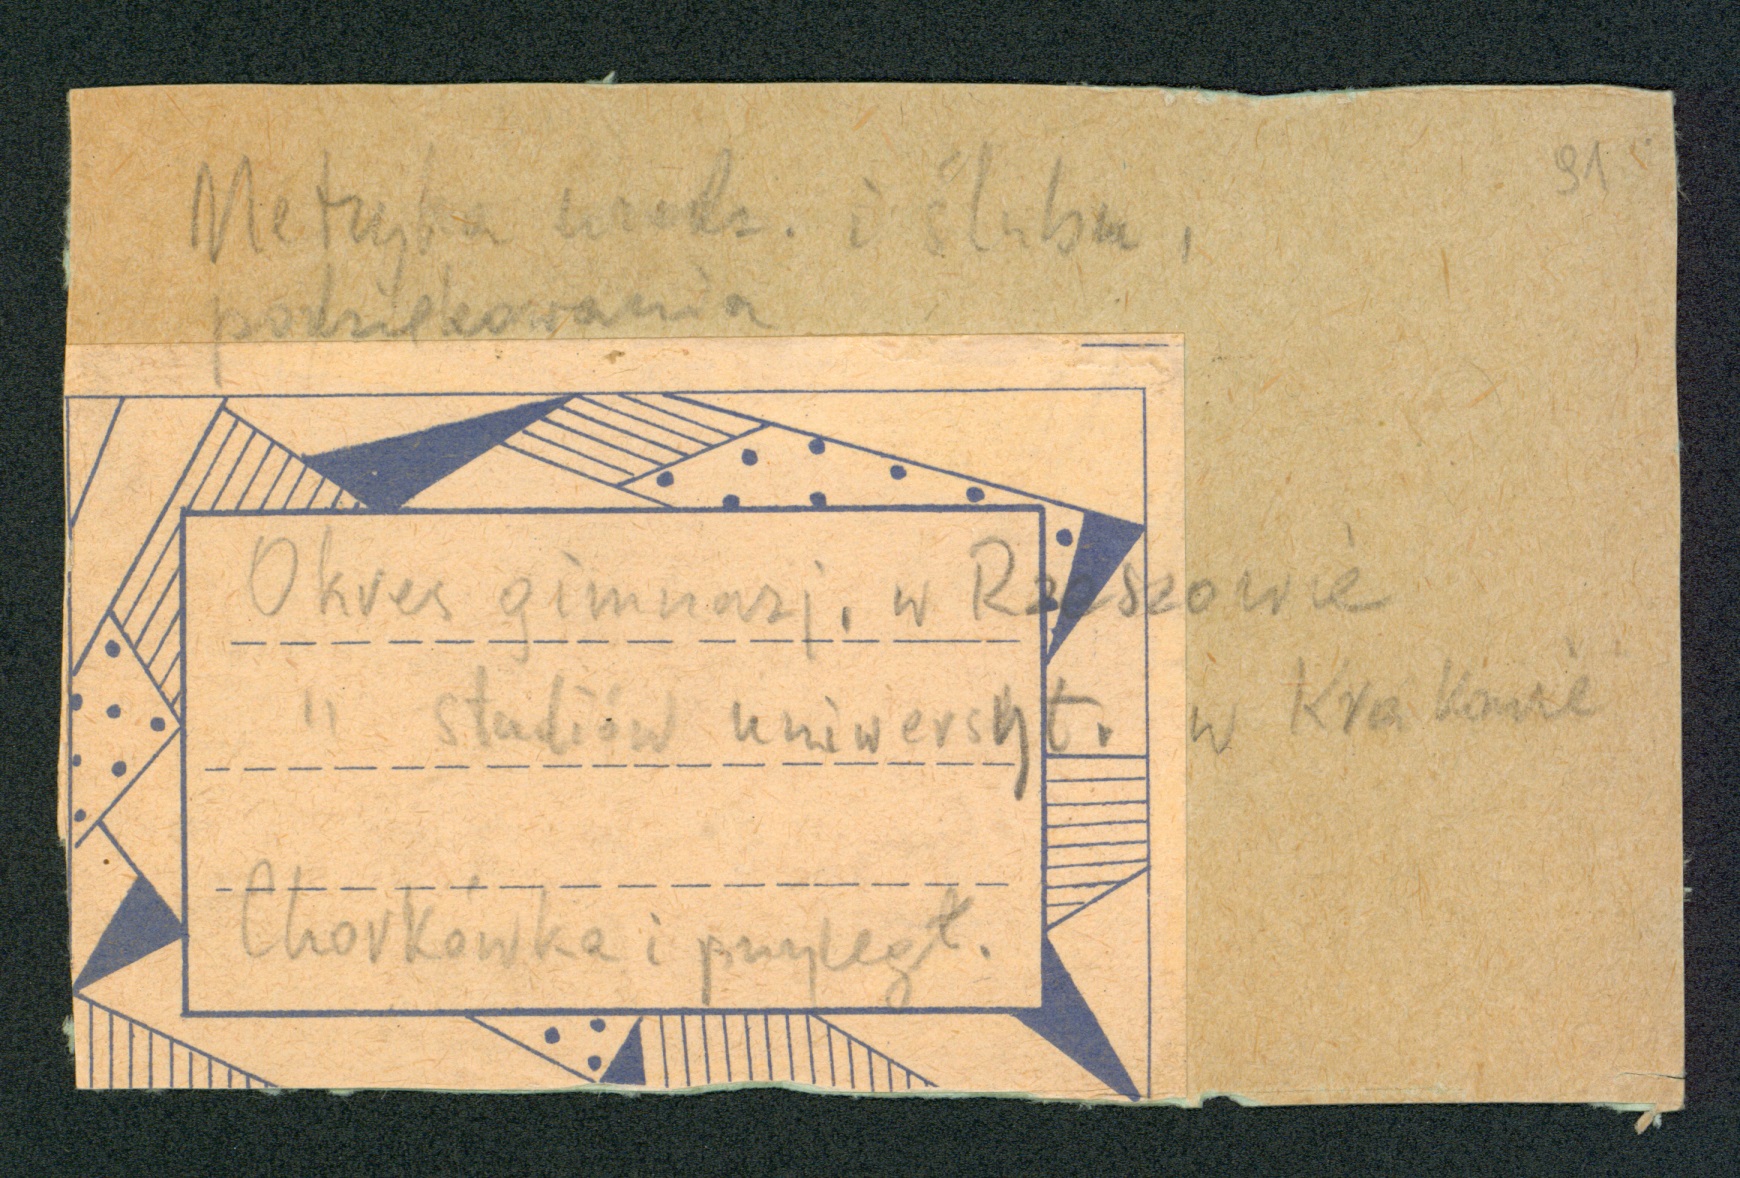 91
Metryka urodz. i ślubu,
podziękowania
Okres gimnazj. w Rzeszowie
" studiów uniwersyt. w Krakowie
Chorkówka i przyległ.